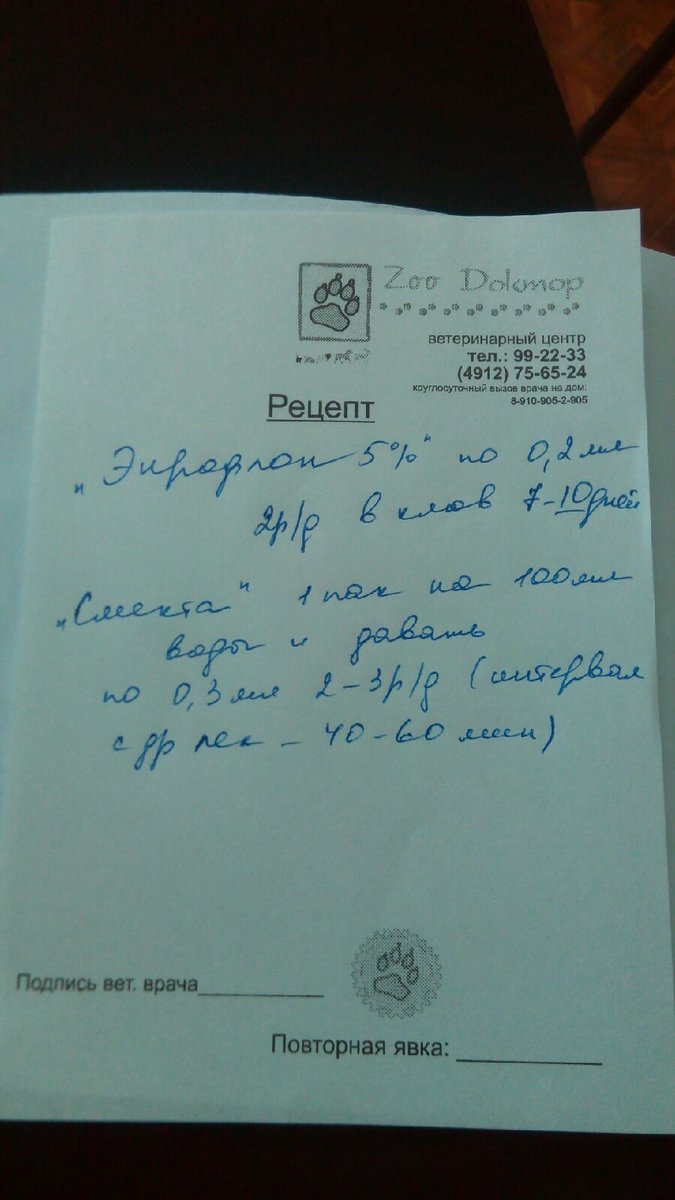 Zoo Doktop
ветеринарный центр
тел.: 99-22-33
(4912) 75-65-24
круглосуточный вызов врача на дом:
8-910-905-2-905
Рецепт
„Энрофлон 5%" по 0,2 мл
2р/д в клюв 7-10 дней
„Смекта" 1 пак на 100 мл
воды и давать
по 0,3 мл 2-3р/д (интервал
с др лек - 40-60 мин)
Подпись вет. врача
Повторная явка: